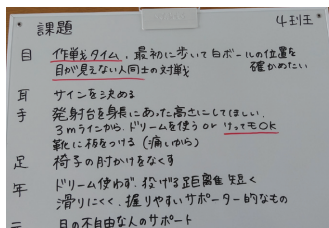 課題 4班王
目 作戦タイム、最初に歩いて白ボールの位置を
目が見えない人同士の対戦 確かめたい
耳 サインを決める
手 発射台を身長にあった高さにしてほしい
3mラインから、ドリームを使う or けってもOK
靴に板をつける(痛いから)
足 椅子の肘かけをなくす
年 ドリーム使わず、投げる距離短く
滑りにくく、握りやすいサポーター的なもの
目の不自由な人のサポート